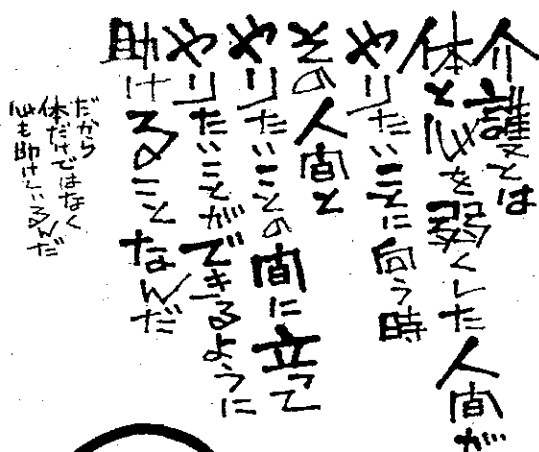 介護とは
体と心を弱くした人間が
やりたいことに向う時
その人間と
やりたいことの間に立って
やりたいことができるように
助けることなんだ
だから
体だけではなく
心も助けているんだ